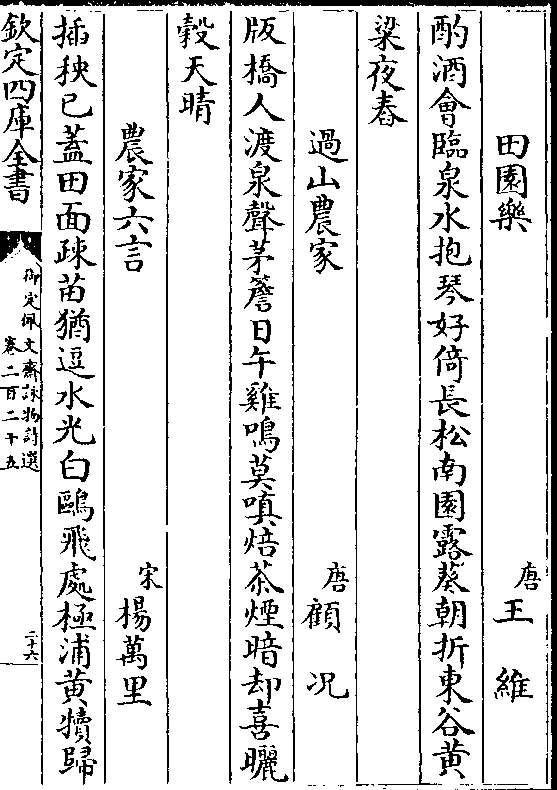 田園樂 唐 王維
酌酒會臨泉水抱琴好倚長松南園露葵朝折東谷黃
粱夜舂
過山農家 唐 顧況
版橋人渡泉聲茅簷日午雞鳴莫嗔焙茶煙暗却喜曬
穀天晴
農家六言 宋 楊萬里
插秧已蓋田面疎苗猶逗水光白鷗飛處極浦黃犢歸
欽定四庫全書
御定佩文齋詠物詩選
卷二百二十五
二十六